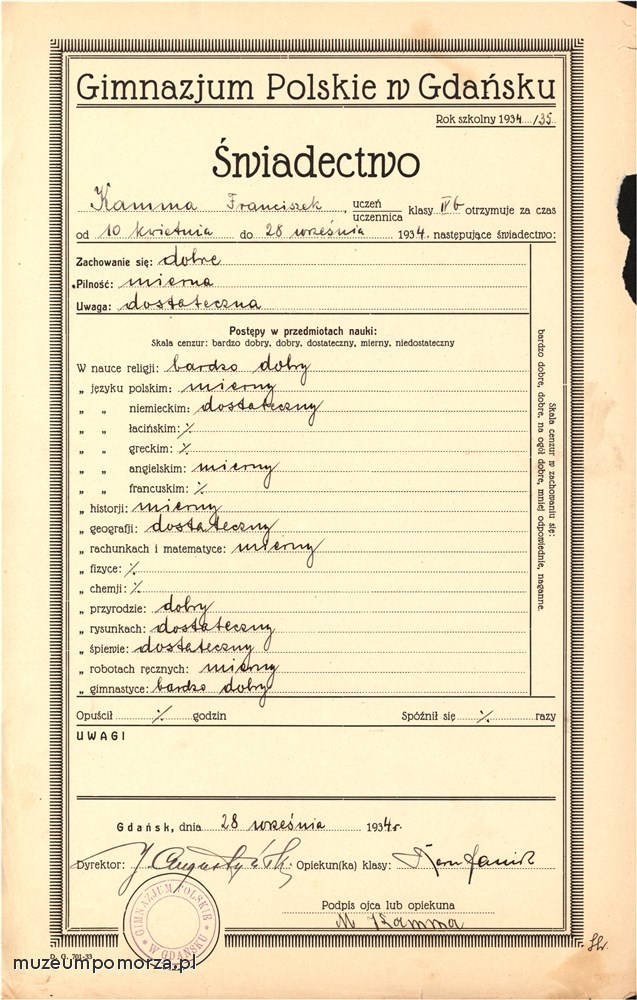 Gimnazjum Polskie w Gdańsku
Rok szkolny 1934/35.
Świadectwo
Kamma Franciszek, uczeń
uczennica klasy IVb otrzymuje za czas
od 10 kwietnia do 28 września 1934. następujące świadectwo:
Zachowanie się: dobre
Pilność: mierna
Uwaga: dostateczna
Postępy w przedmiotach nauki:
Skala cenzur: bardzo dobry, dobry, dostateczny, mierny, niedostateczny
W nauce religji: bardzo dobry
„ języku polskim: mierny
„ „ niemieckim: dostateczny
„ „ łacińskim: ·/.
„ „ greckim: ·/.
„ „ angielskim: mierny
„ „ francuskim: ·/.
„ historji: mierny
„ geografji: dostateczny
„ rachunkach i matematyce: mierny
„ fizyce: ·/.
„ chemji: ·/.
„ przyrodzie: dobry
„ rysunkach: dostateczny
„ śpiewie: dostateczny
„ robotach ręcznych: mierny
„ gimnastyce: bardzo dobry
Skala cenzur w zachowaniu się:
bardzo dobre, dobre, na ogół dobre, mniej odpowiednie, naganne.
Opuścił ·/. godzin Spóźnił się ·/. razy
UWAGI
Gdańsk, dnia 28 września 1934r.
Dyrektor: J. Augustyński Opiekun(ka) klasy:
Podpis ojca lub opiekuna
M Kamma
GIMNAZJUM POLSKIE
W GDAŃSKU
D. G. 701-33
muzeumpomorza.pl